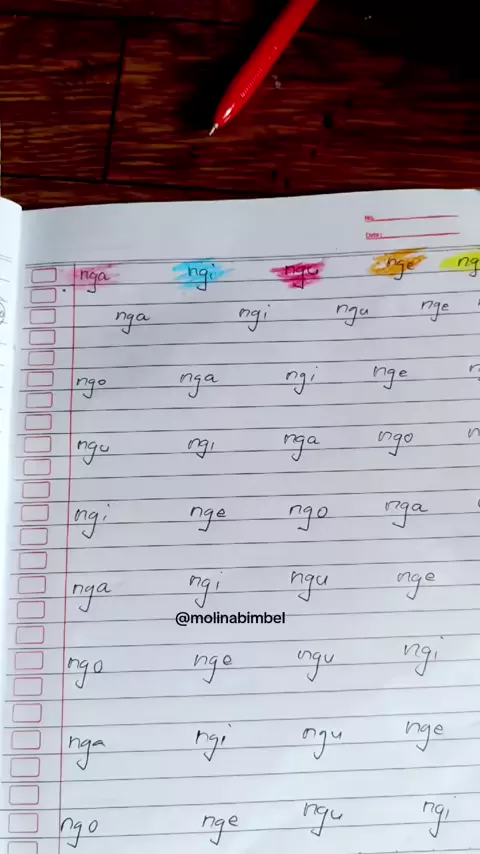 No.
Date:
nga ngi ngu nge ng
nga ngi ngu nge
ngo nga ngi nge
ngu ngi nga ngo
ngi nge ngo nga
nga ngi ngu nge
@molinabimbel
ngo nge ngu ngi
nga ngi ngu nge
ngo nge ngu ngi